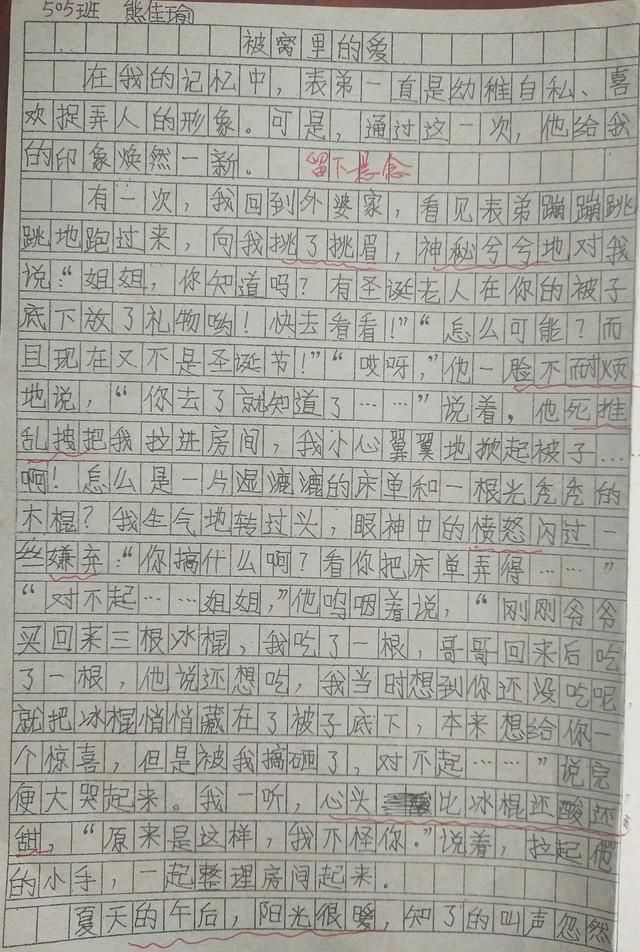 505班 熊佳瑜
被窝里的爱
在我的记忆中，表弟一直是幼稚自私、喜
欢捉弄人的形象。可是，通过这一次，他给我
的印象焕然一新。 留下悬念
有一次，我回到外婆家，看见表弟蹦蹦跳
跳地跑过来，向我挑了挑眉，神秘兮兮地对我
说：“姐姐，你知道吗？有圣诞老人在你的被子
底下放了礼物哟！快去看看！”“怎么可能？而
且现在又不是圣诞节！”“哎呀，”他一脸不耐烦
地说，“你去了就知道了……”说着，他死推
乱拽把我拉进房间，我小心翼翼地掀起被子…
啊！怎么是一片湿漉漉的床单和一根光秃秃的
木棍？我生气地转过头，眼神中的愤怒闪过一
丝嫌弃：“你搞什么啊？看你把床单弄得……”
“对不起……姐姐，”他呜咽着说，“刚刚爷爷
买回来三根冰棍，我吃了一根，哥哥回来后吃
了一根，他说还想吃，我当时想到你还没吃呢
就把冰棍悄悄藏在了被子底下，本来想给你一
个惊喜，但是被我搞砸了，对不起……”说完
便大哭起来。我一听，心头比冰棍还酸还
甜，“原来是这样，我不怪你。”说着，拉起他
的小手，一起整理房间起来。
夏天的午后，阳光很暖，知了的叫声忽然